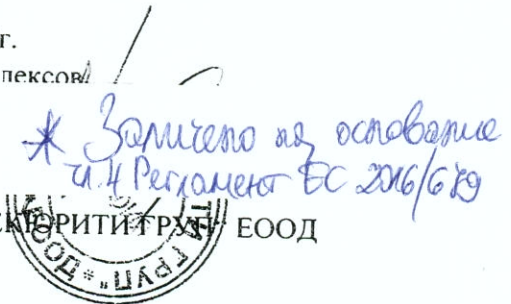 г.
лексов
* Заличено на основание
чл. 4 Регламент ЕС 2016/679
СЕКЮРИТИ ГРУП" ЕООД
ТА ГРУП" * ДООЗ